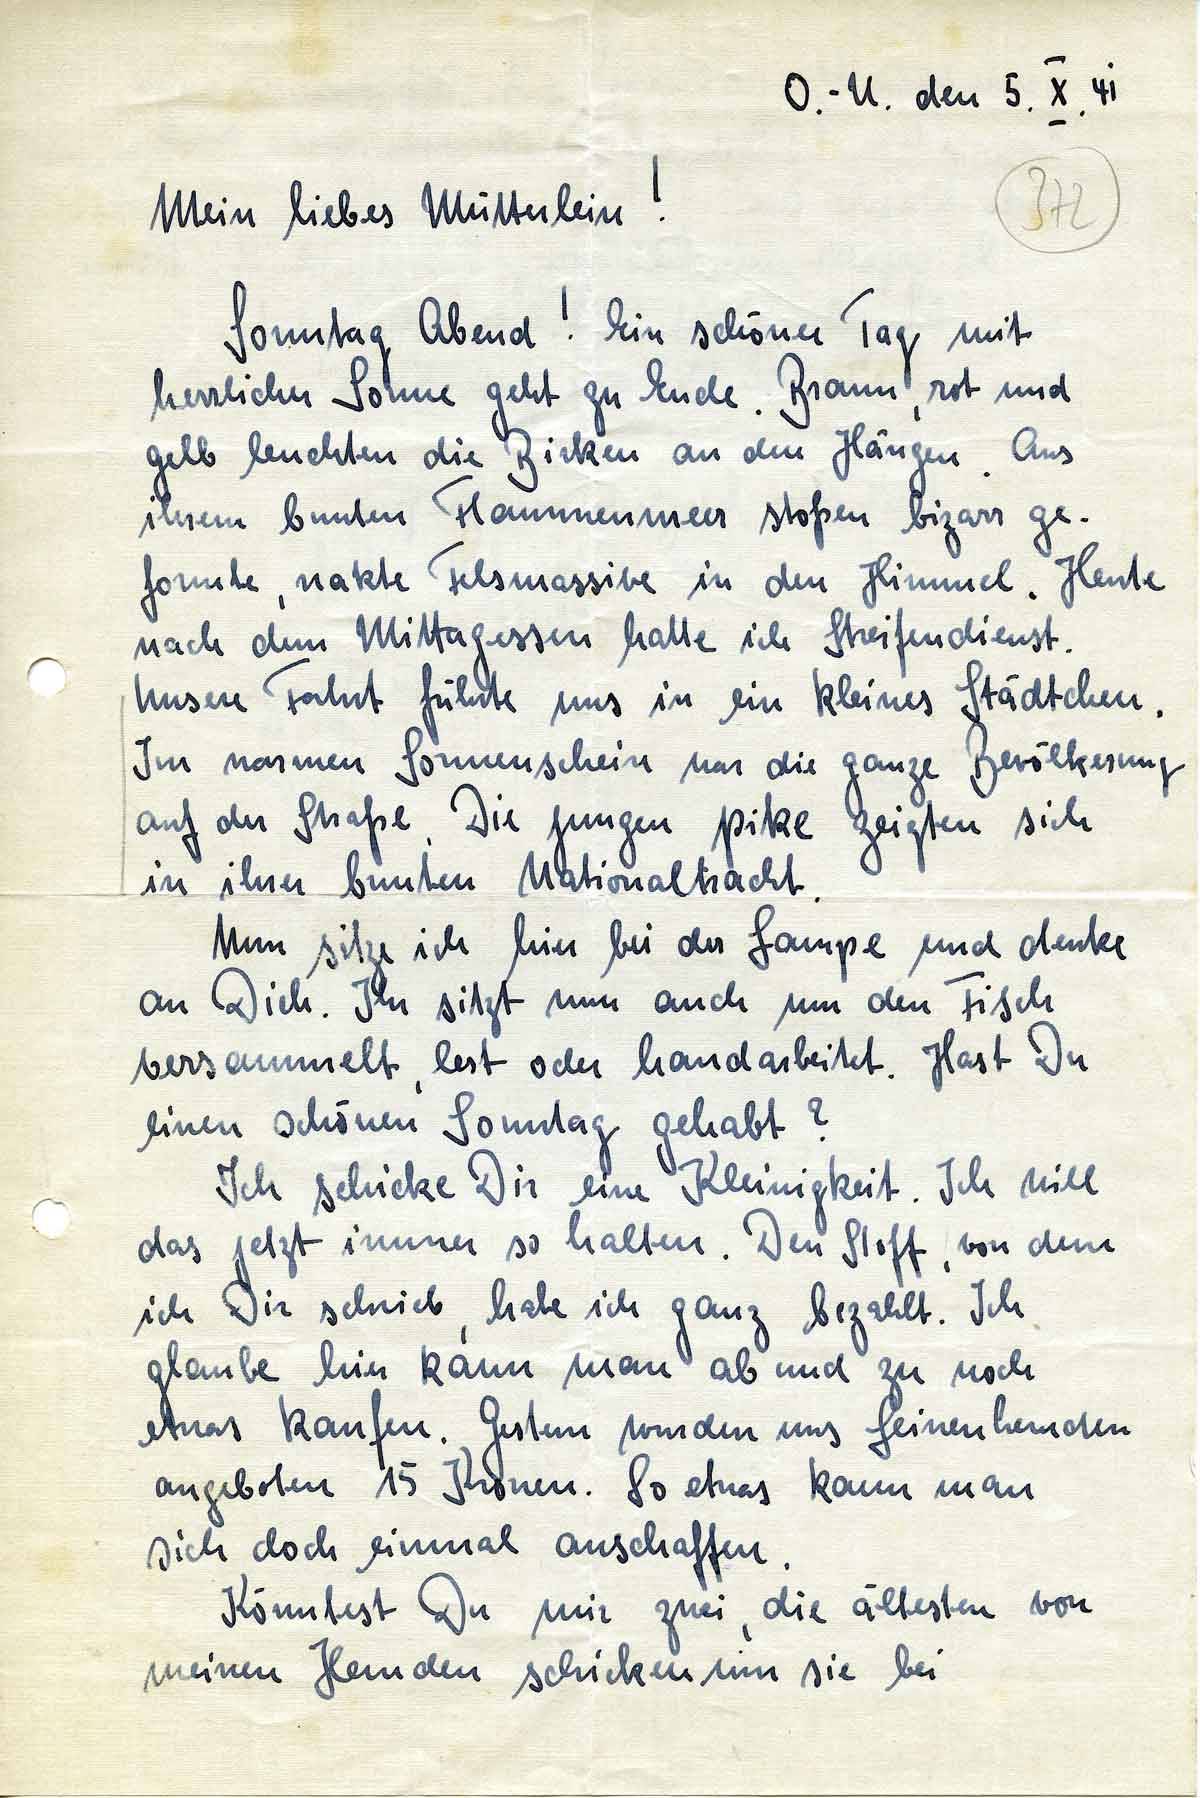 O.-U. den 5. X. 41
372
Mein liebes Mütterlein!
Sonntag Abend! Ein schöner Tag mit
herrlicher Sonne geht zu Ende. Braun, rot und
gelb leuchten die Birken an den Hängen. Aus
ihrem bunten Flammenmeer stoßen bizarr ge-
formte, nakte Felsmassive in den Himmel. Heute
nach dem Mittagessen hatte ich Streifendienst.
Unsere Fahrt führte uns in ein kleines Städtchen.
Im warmen Sonnenschein war die ganze Bevölkerung
auf der Straße. Die jungen pike zeigten sich
in ihrer bunten Nationaltracht.
Nun sitze ich hier bei der Lampe und denke
an Dich. Ihr sitzt nun auch um den Tisch
versammelt, lest oder handarbeitet. Hast Du
einen schönen Sonntag gehabt?
Ich schicke Dir eine Kleinigkeit. Ich will
das jetzt immer so halten. Den Stoff, von dem
ich Dir schrieb, habe ich ganz bezahlt. Ich
glaube hier kann man ab und zu noch
etwas kaufen. Gestern wurden uns Leinenhemden
angeboten 15 Kronen. So etwas kann man
sich doch einmal anschaffen.
Könntest Du mir zwei, die ältesten von
meinen Hemden schicken um sie bei